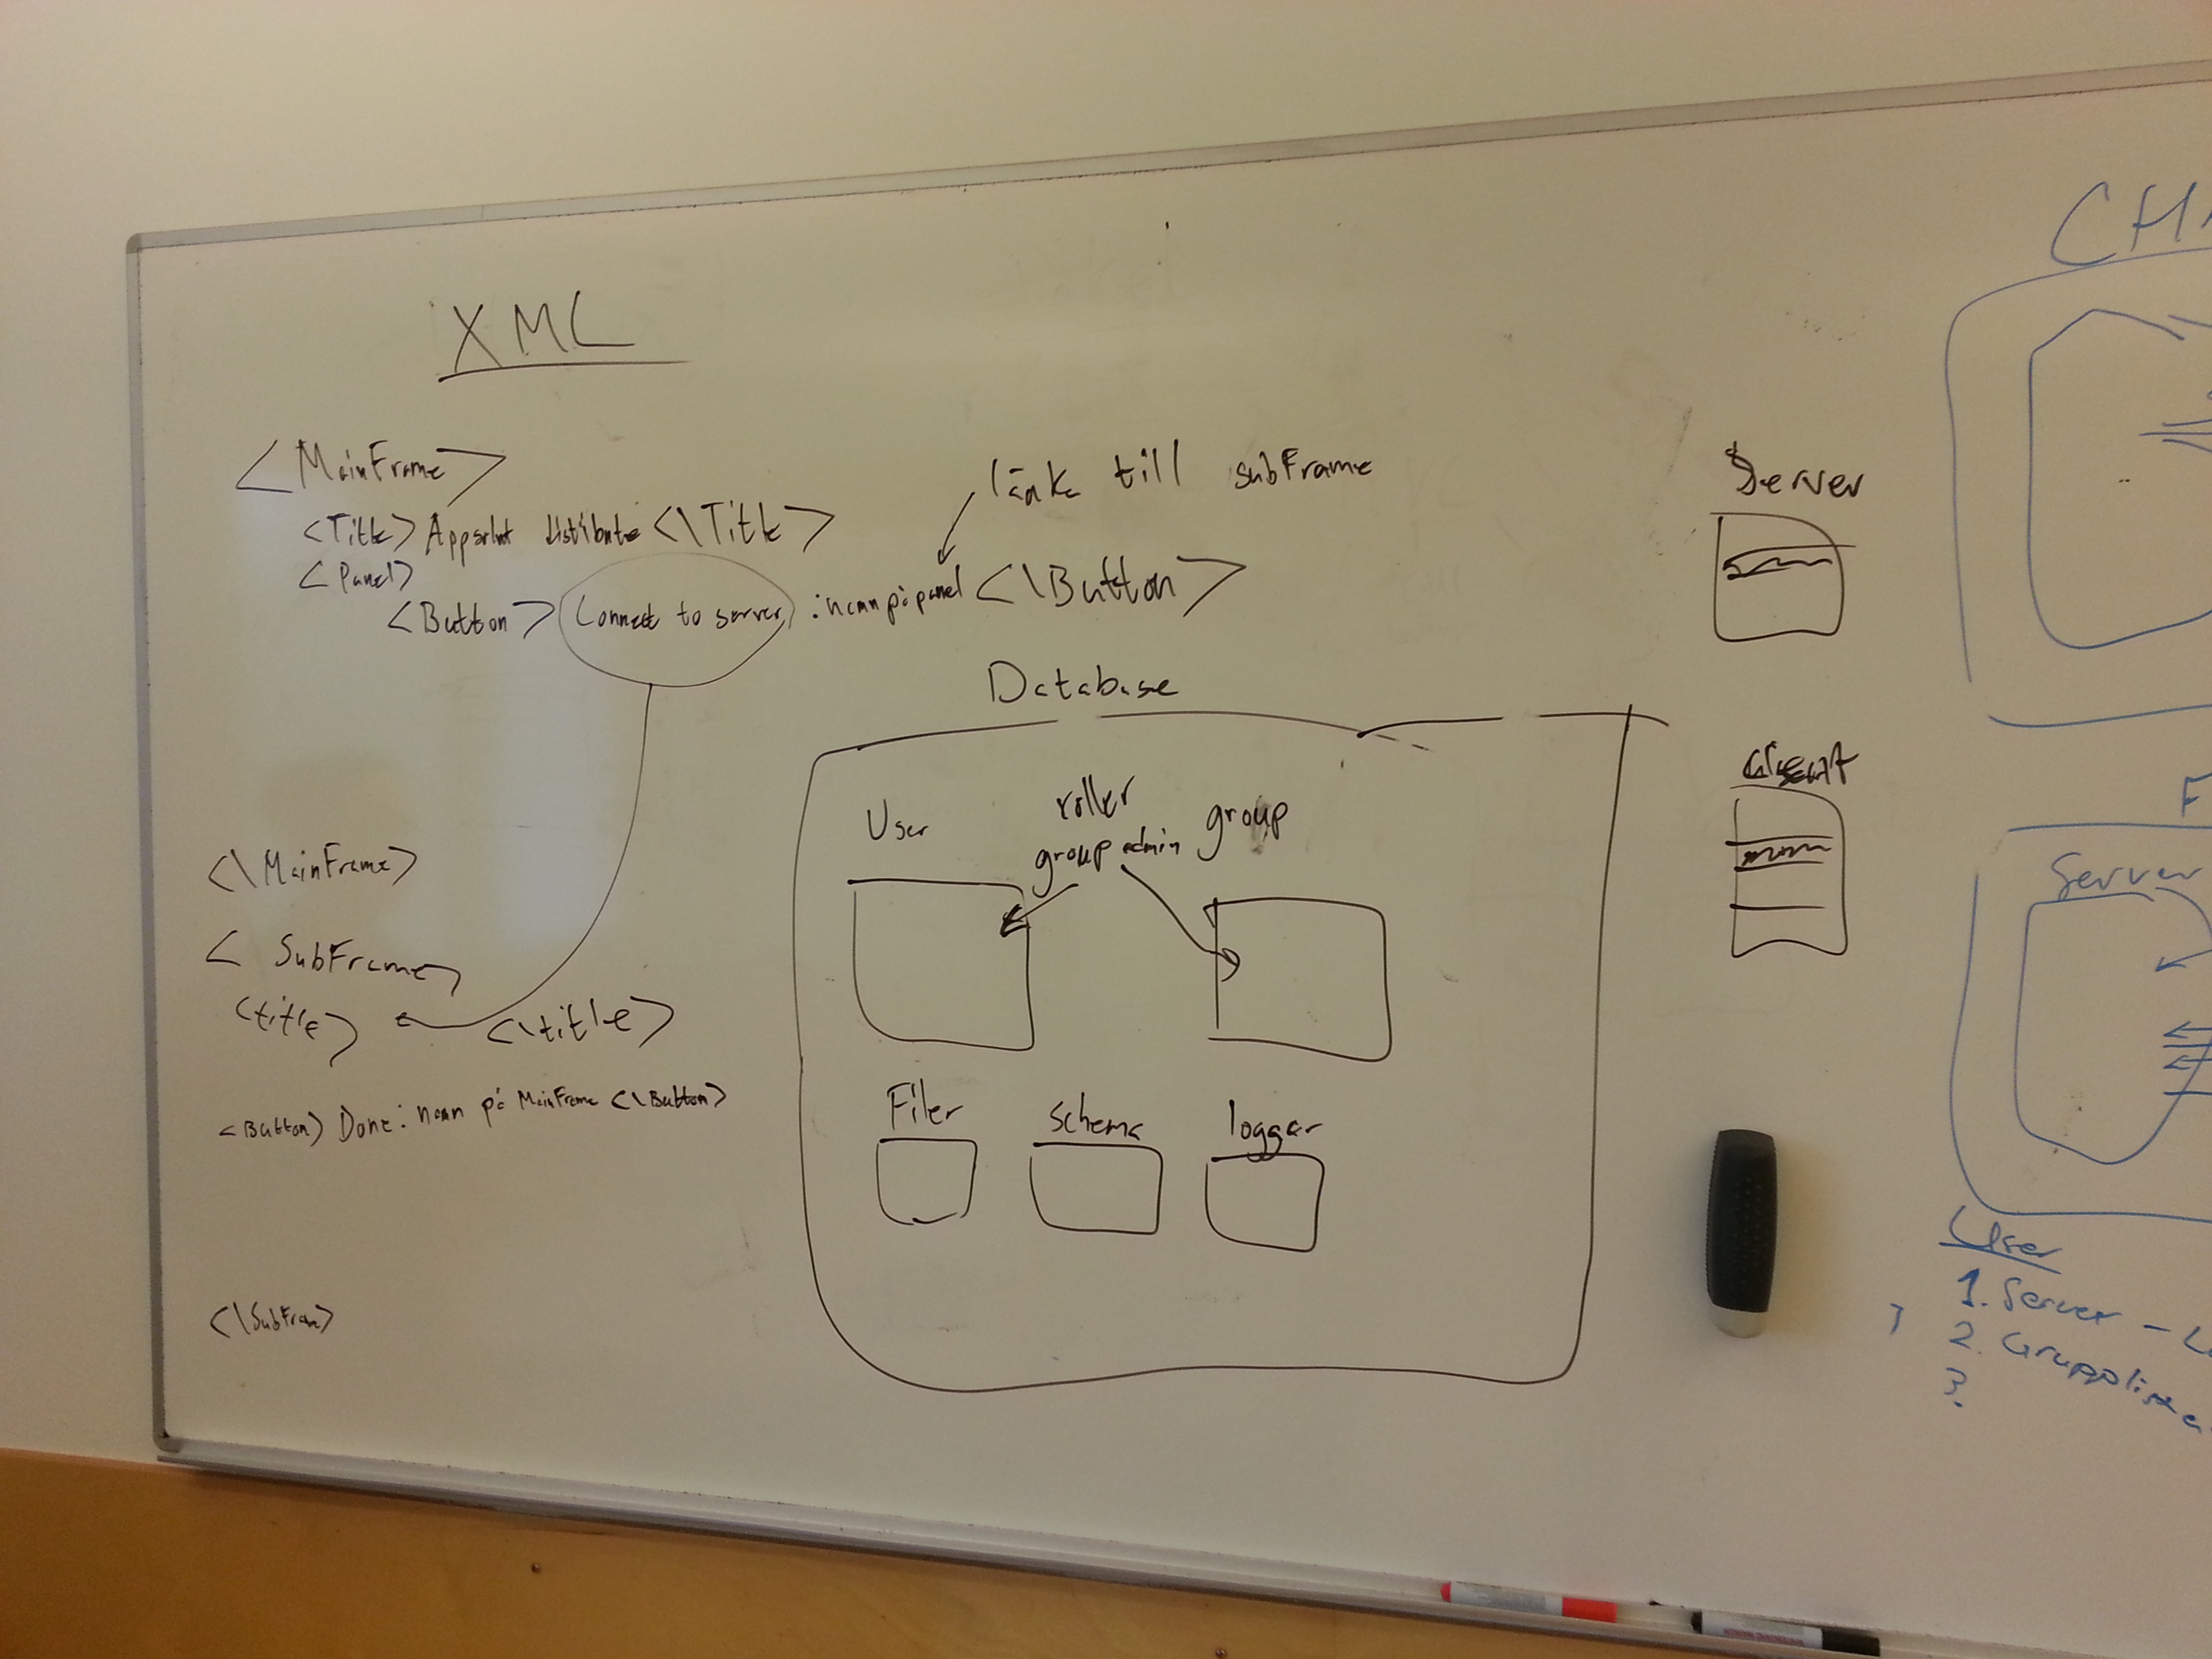 XML
<MainFrame>
<Title> <\Title>
länk till subFrame
<Panel>
<Button> Connect to server : namn på panel <\Button>
<\MainFrame>
< SubFrame>
<title> <\title>
<Button> Done : namn på MainFrame <\Button>
<\SubFram>
Database
User
roller
group admin
group
Filer
schema
loggar
Server
Client
CH
F
Server
User
1. Server -
2.
3.